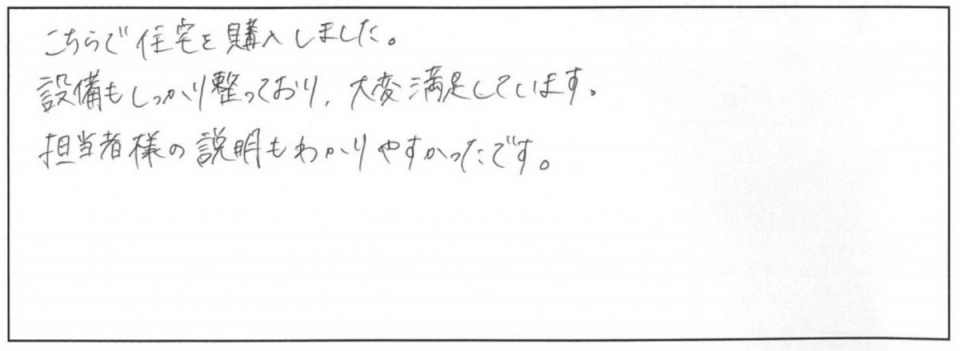 こちらで住宅を購入しました。
設備もしっかり整っており、大変満足しています。
担当者様の説明もわかりやすかったです。